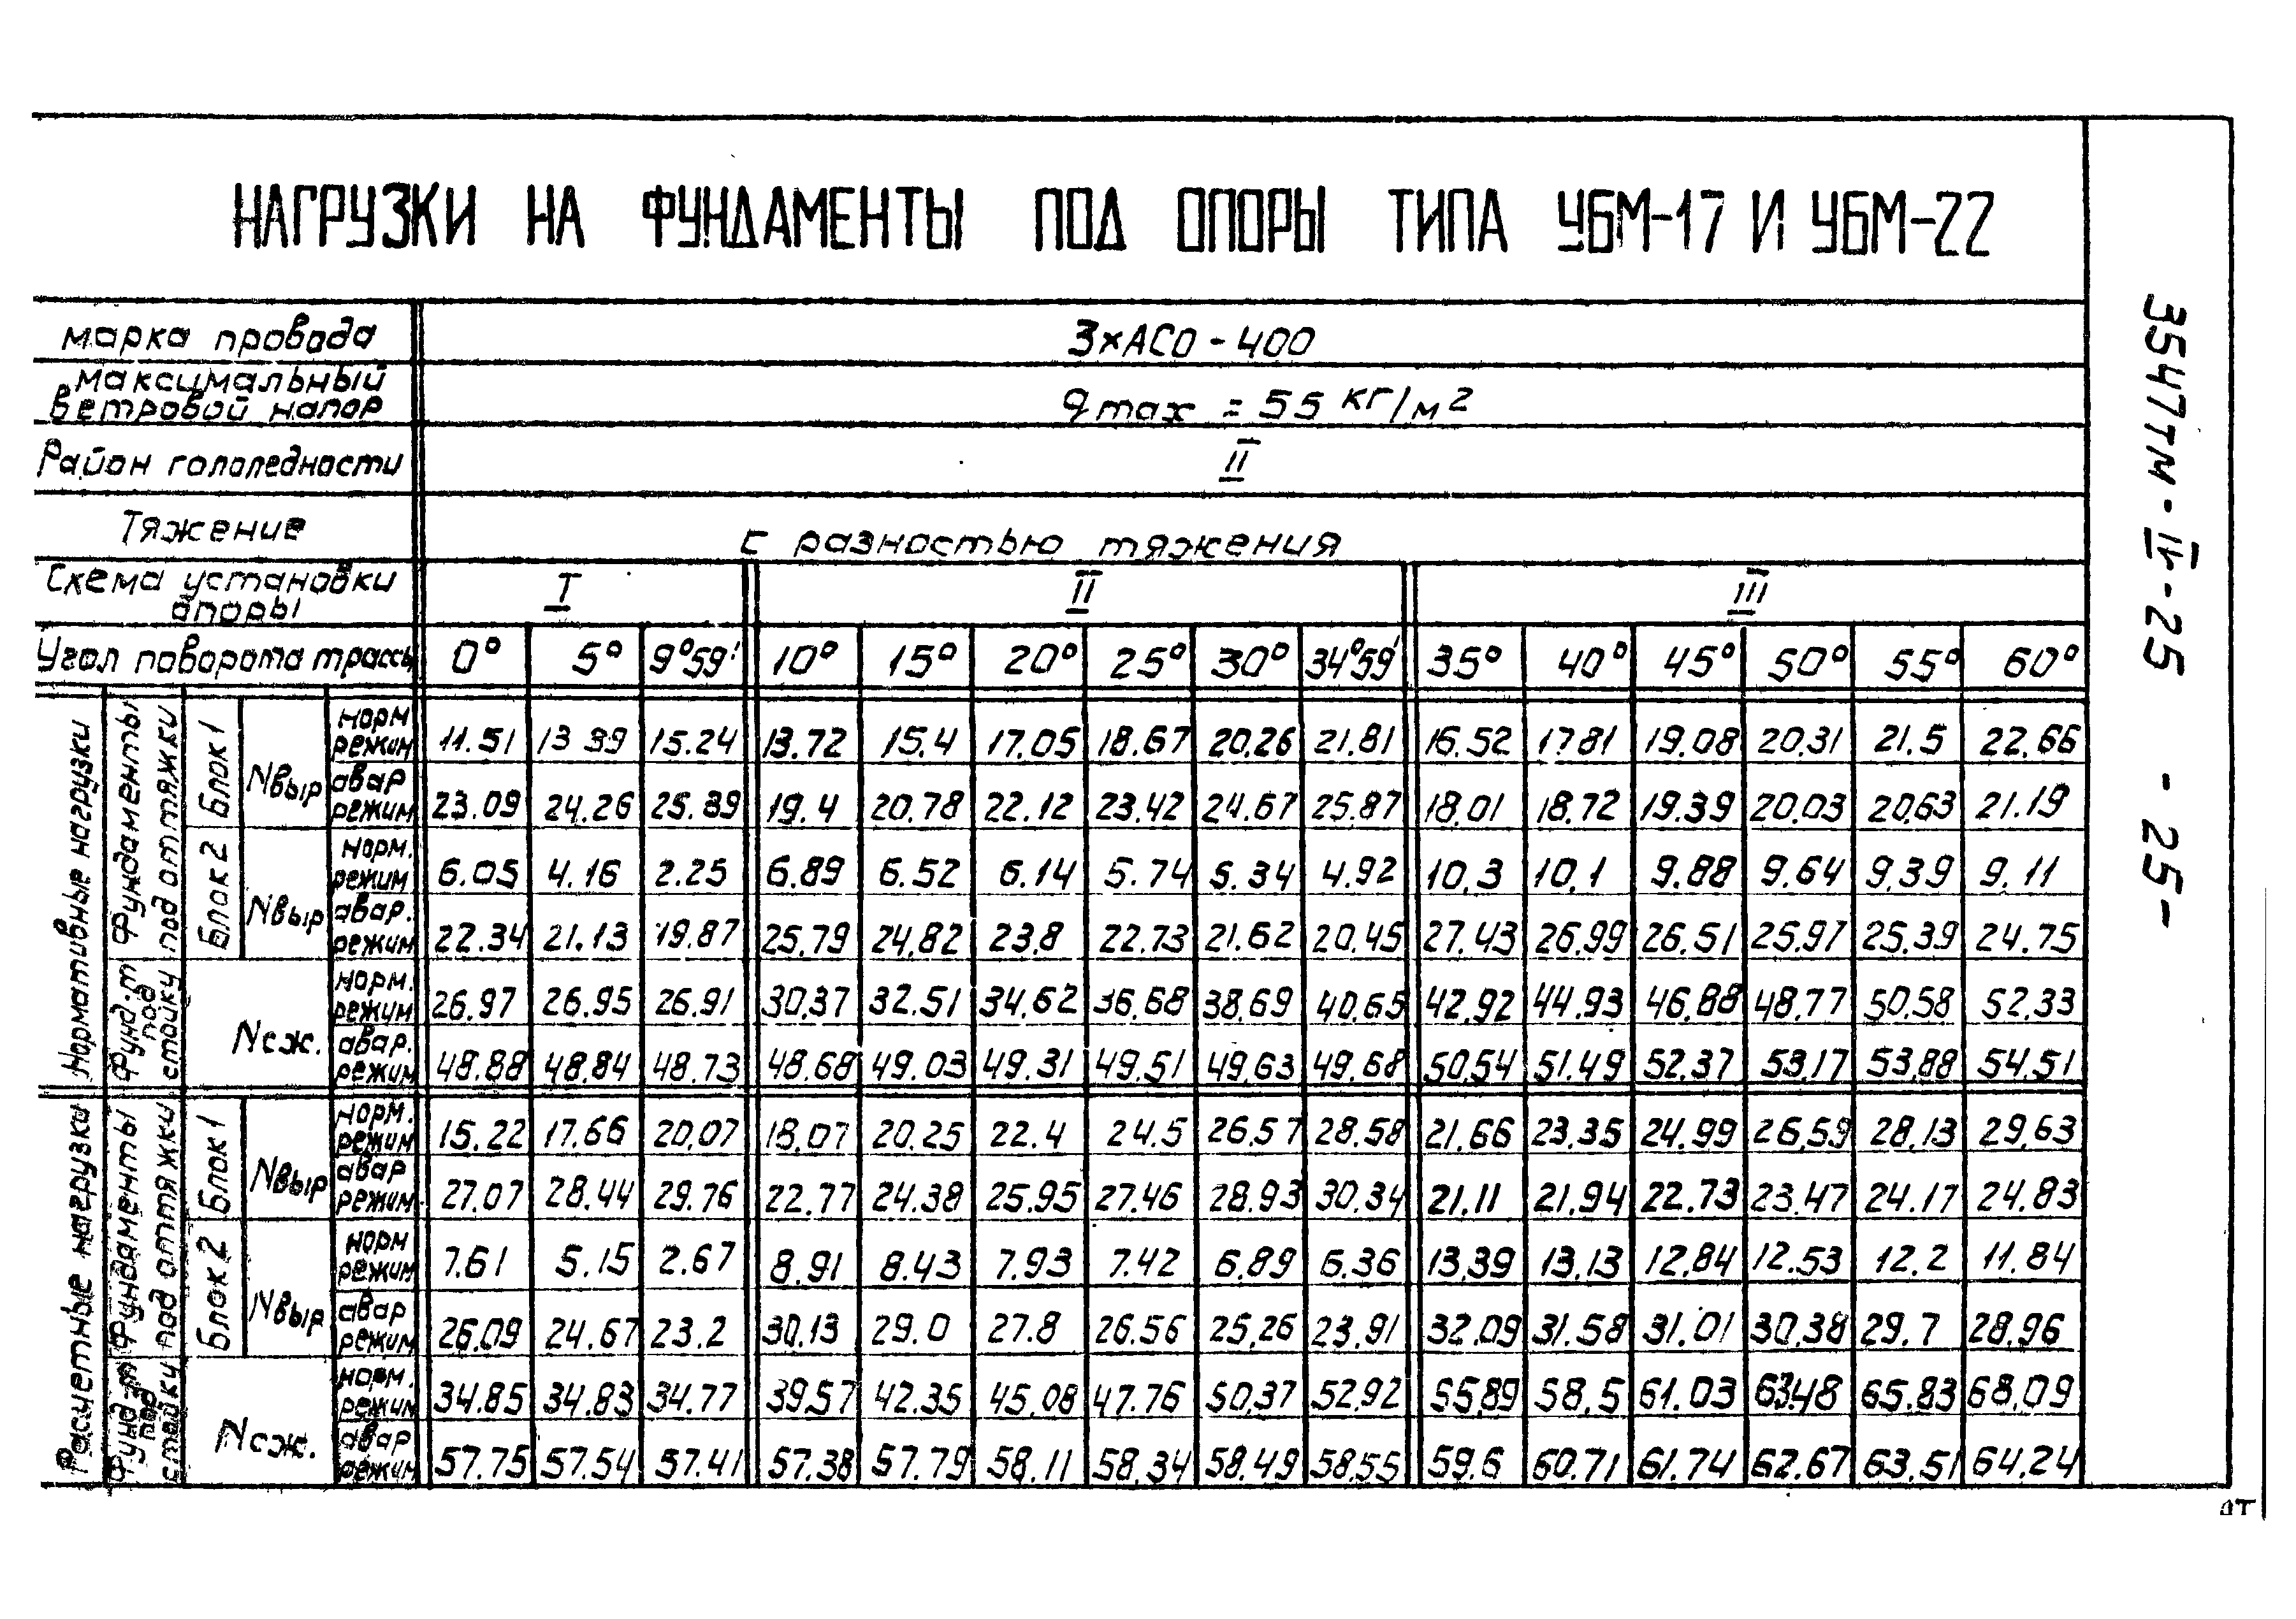 НАГРУЗКИ НА ФУНДАМЕНТЫ ПОД ОПОРЫ ТИПА УБМ-17 И УБМ-22
марка провода 3×АСО-400
максимальный
ветровой напор qmax = 55 кг/м²
Район гололедности II
Тяжение с разностью тяжения
Схема установки
опоры I II III
Угол поворота трассы 0° 5° 9°59' 10° 15° 20° 25° 30° 34°59' 35° 40° 45° 50° 55° 60°
Нормативные нагрузки
Фундаменты
под оттяжки
Блок 1
Nвыр
норм
режим 11.51 13 39 15.24 13.72 15.4 17.05 18.67 20.26 21.81 16.52 17 81 19.08 20.31 21.5 22.66
авар
режим 23.09 24.26 25.39 19.4 20.78 22.12 23.42 24.67 25.87 18.01 18.72 19.39 20.03 20.63 21.19
Блок 2
Nвыр
норм.
режим 6.05 4.16 2.25 6.89 6.52 6.14 5.74 5.34 4.92 10.3 10.1 9.88 9.64 9.39 9.11
авар.
режим 22.34 21.13 19.87 25.79 24.82 23.8 22.73 21.62 20.45 27.43 26.99 26.51 25.97 25.39 24.75
Фунд.т
под
стойку
Nсж.
норм.
режим 26.97 26.95 26.91 30.37 32.51 34.62 36.68 38.69 40.65 42.92 44.93 46.88 48.77 50.58 52.33
авар.
режим 48.88 48.84 48.73 48.68 49.03 49.31 49.51 49.63 49.68 50.54 51.49 52.37 53.17 53.88 54.51
Расчетные нагрузки
Фундаменты
под оттяжки
Блок 1
Nвыр
норм.
режим 15.22 17.66 20.07 18.07 20.25 22.4 24.5 26.57 28.58 21.66 23.35 24.99 26.59 28.13 29.63
авар
режим 27.07 28.44 29.76 22.77 24.38 25.95 27.46 28.93 30.34 21.11 21.94 22.73 23.47 24.17 24.83
Блок 2
Nвыр
норм
режим 7.61 5.15 2.67 8.91 8.43 7.93 7.42 6.89 6.36 13.39 13.13 12.84 12.53 12.2 11.84
авар
режим 26.09 24.67 23.2 30.13 29.0 27.8 26.56 25.26 23.91 32.09 31.58 31.01 30.38 29.7 28.96
Фунд-т
под
стойку
Nсж.
норм.
режим 34.85 34.83 34.77 39.57 42.35 45.08 47.76 50.37 52.92 55.89 58.5 61.03 63.48 65.83 68.09
авар
режим 57.75 57.54 57.41 57.38 57.79 58.11 58.34 58.49 58.55 59.6 60.71 61.74 62.67 63.51 64.24
3547тм-IV-25 -25-